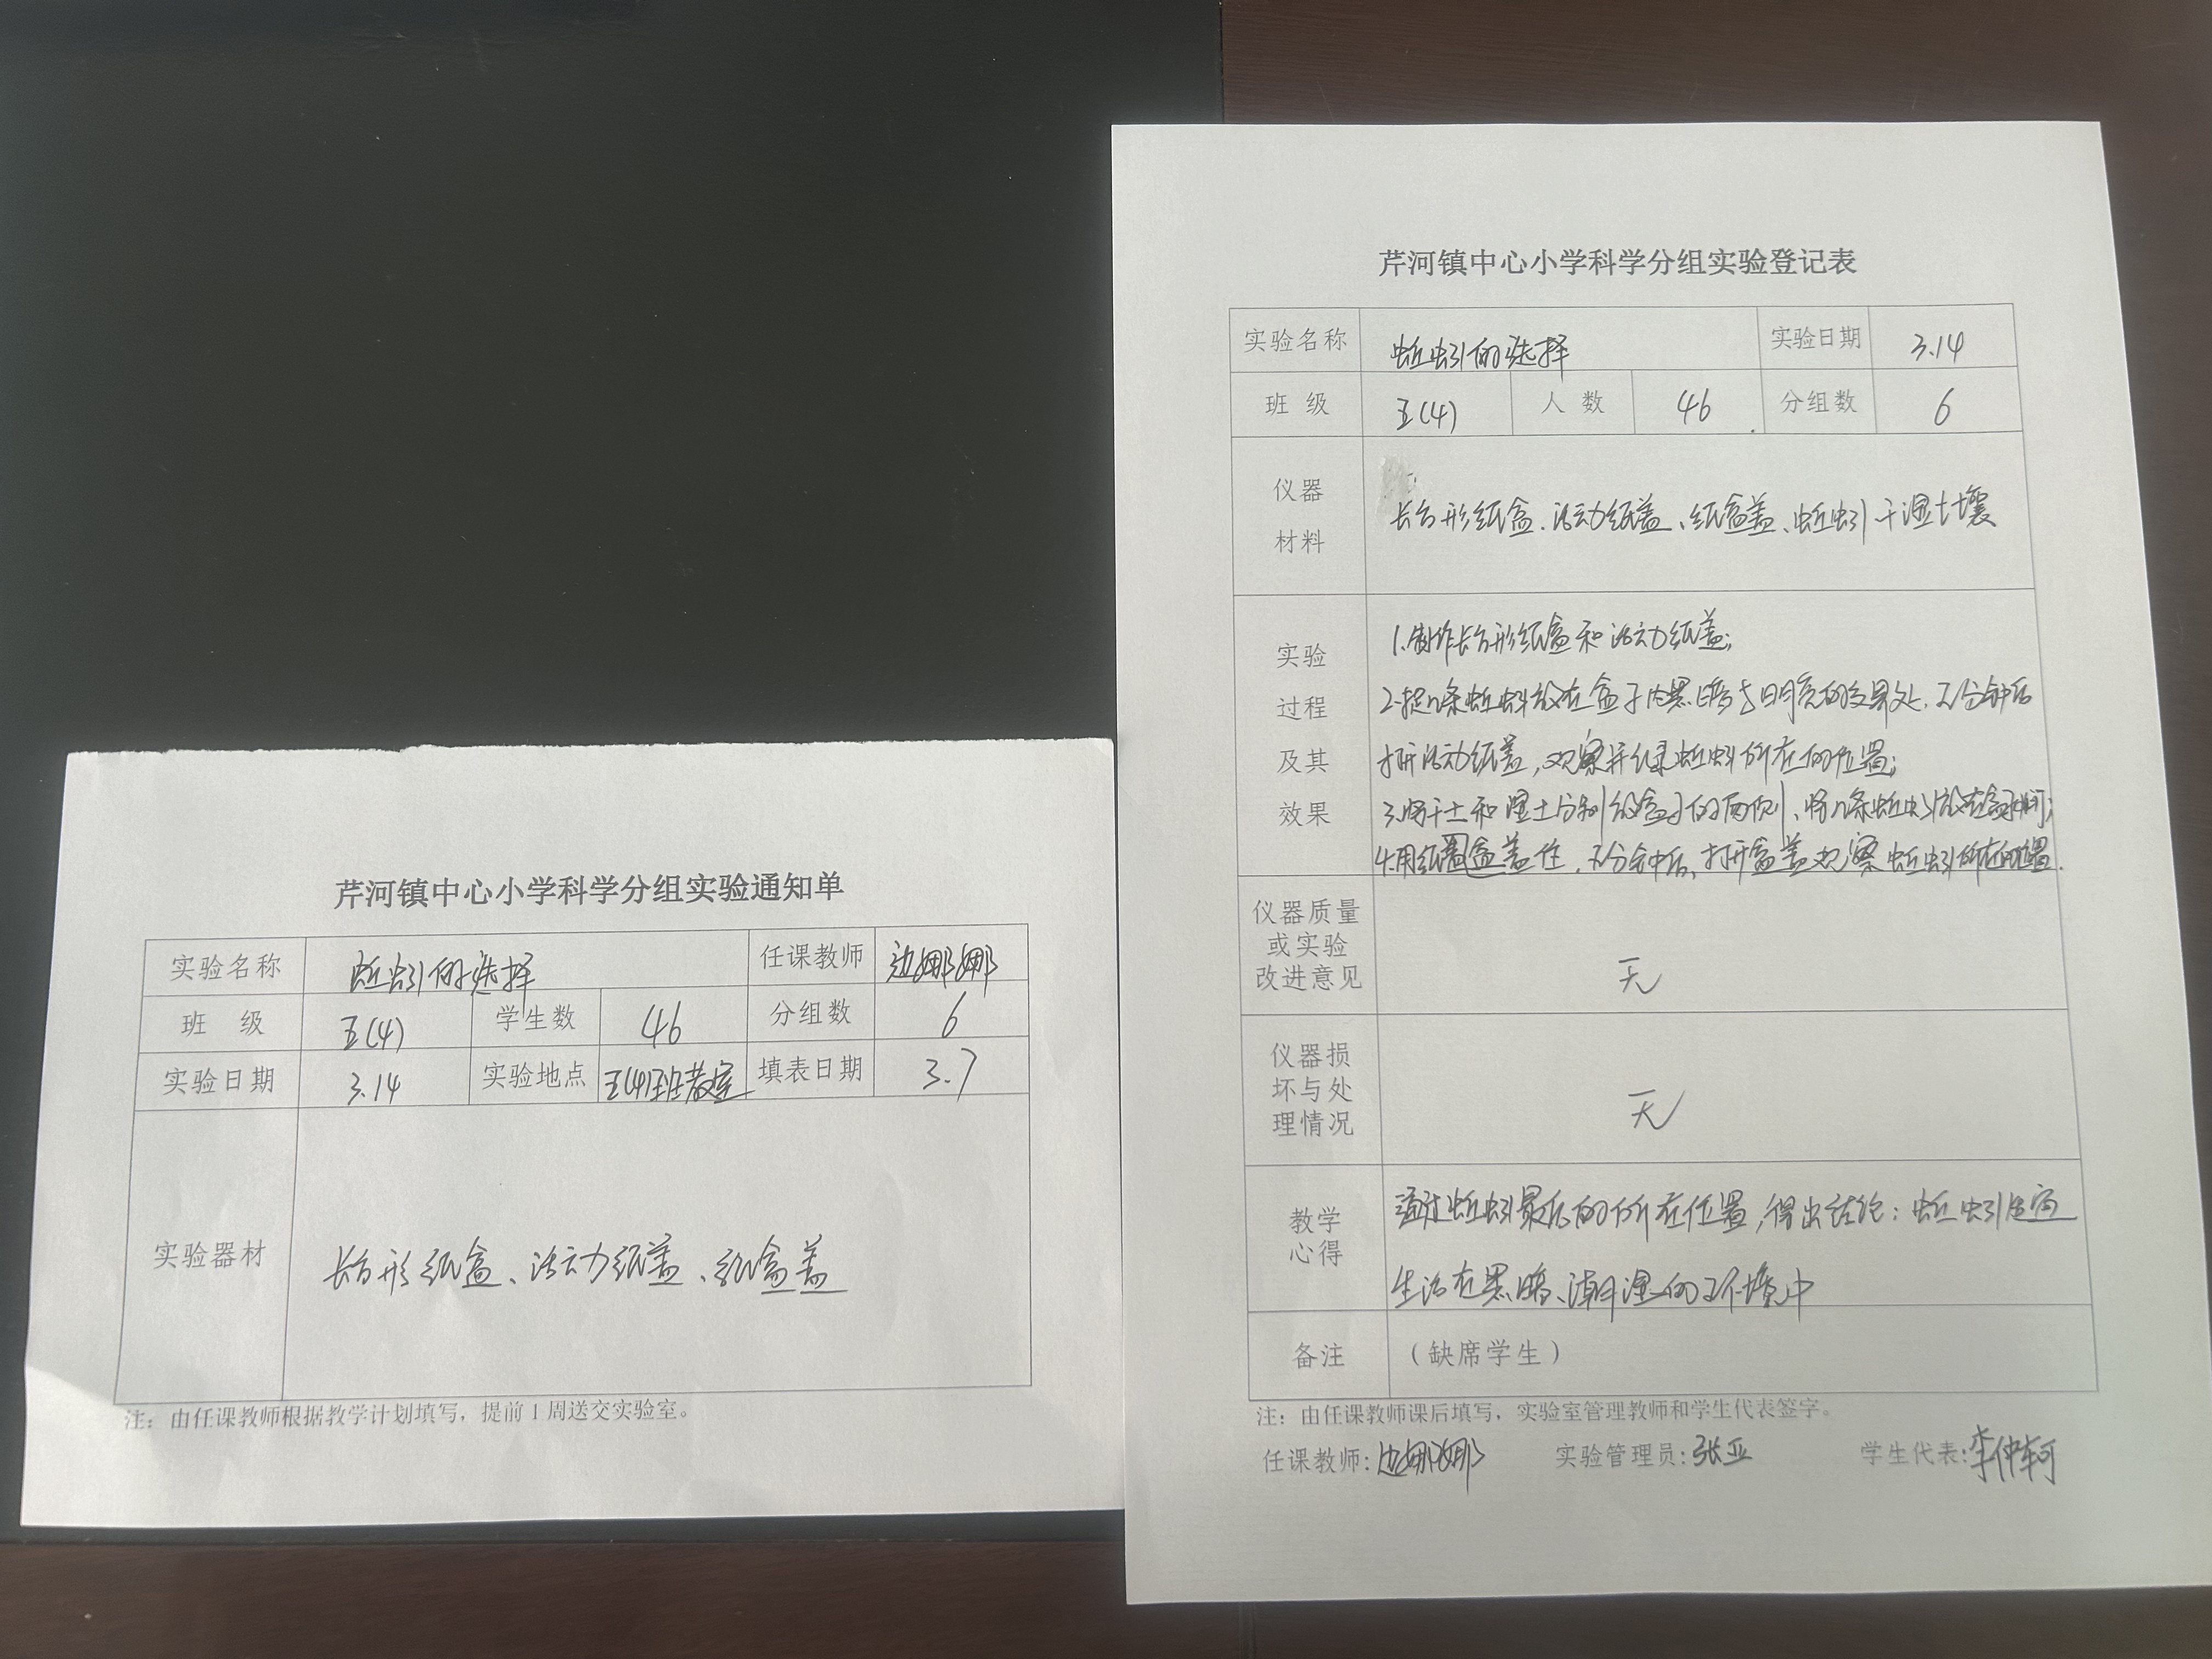 芹河镇中心小学科学分组实验通知单
实验名称 蚯蚓的选择 任课教师 边娜娜
班 级 五(4) 学生数 46 分组数 6
实验日期 3.14 实验地点 五(4)班教室 填表日期 3.7
实验器材 长方形纸盒、活动纸盖、纸盒盖
注：由任课教师根据教学计划填写，提前1周送交实验室。
芹河镇中心小学科学分组实验登记表
实验名称 蚯蚓的选择 实验日期 3.14
班 级 五(4) 人 数 46 分组数 6
仪器
材料
长方形纸盒、活动纸盖、纸盒盖、蚯蚓 干湿土壤
实验
过程
及其
效果
1.制作长方形纸盒和活动纸盖；
2.捉几条蚯蚓放在盒子内黑暗与明亮的交界处，五分钟后
打开活动纸盖，观察并记录蚯蚓所在的位置；
3.将干土和湿土分别放盒子的两侧、将几条蚯蚓放在盒子中间；
4.用纸盒盖盖住，五分钟后，打开盒盖观察蚯蚓所在的位置.
仪器质量
或实验
改进意见
无
仪器损
坏与处
理情况
无
教学
心得
通过蚯蚓最后的所在位置，得出结论：蚯蚓适宜
生活在黑暗、潮湿的环境中
备注 （缺席学生）
注：由任课教师课后填写，实验室管理教师和学生代表签字。
任课教师：边娜娜 实验管理员：张亚 学生代表：李仲轲